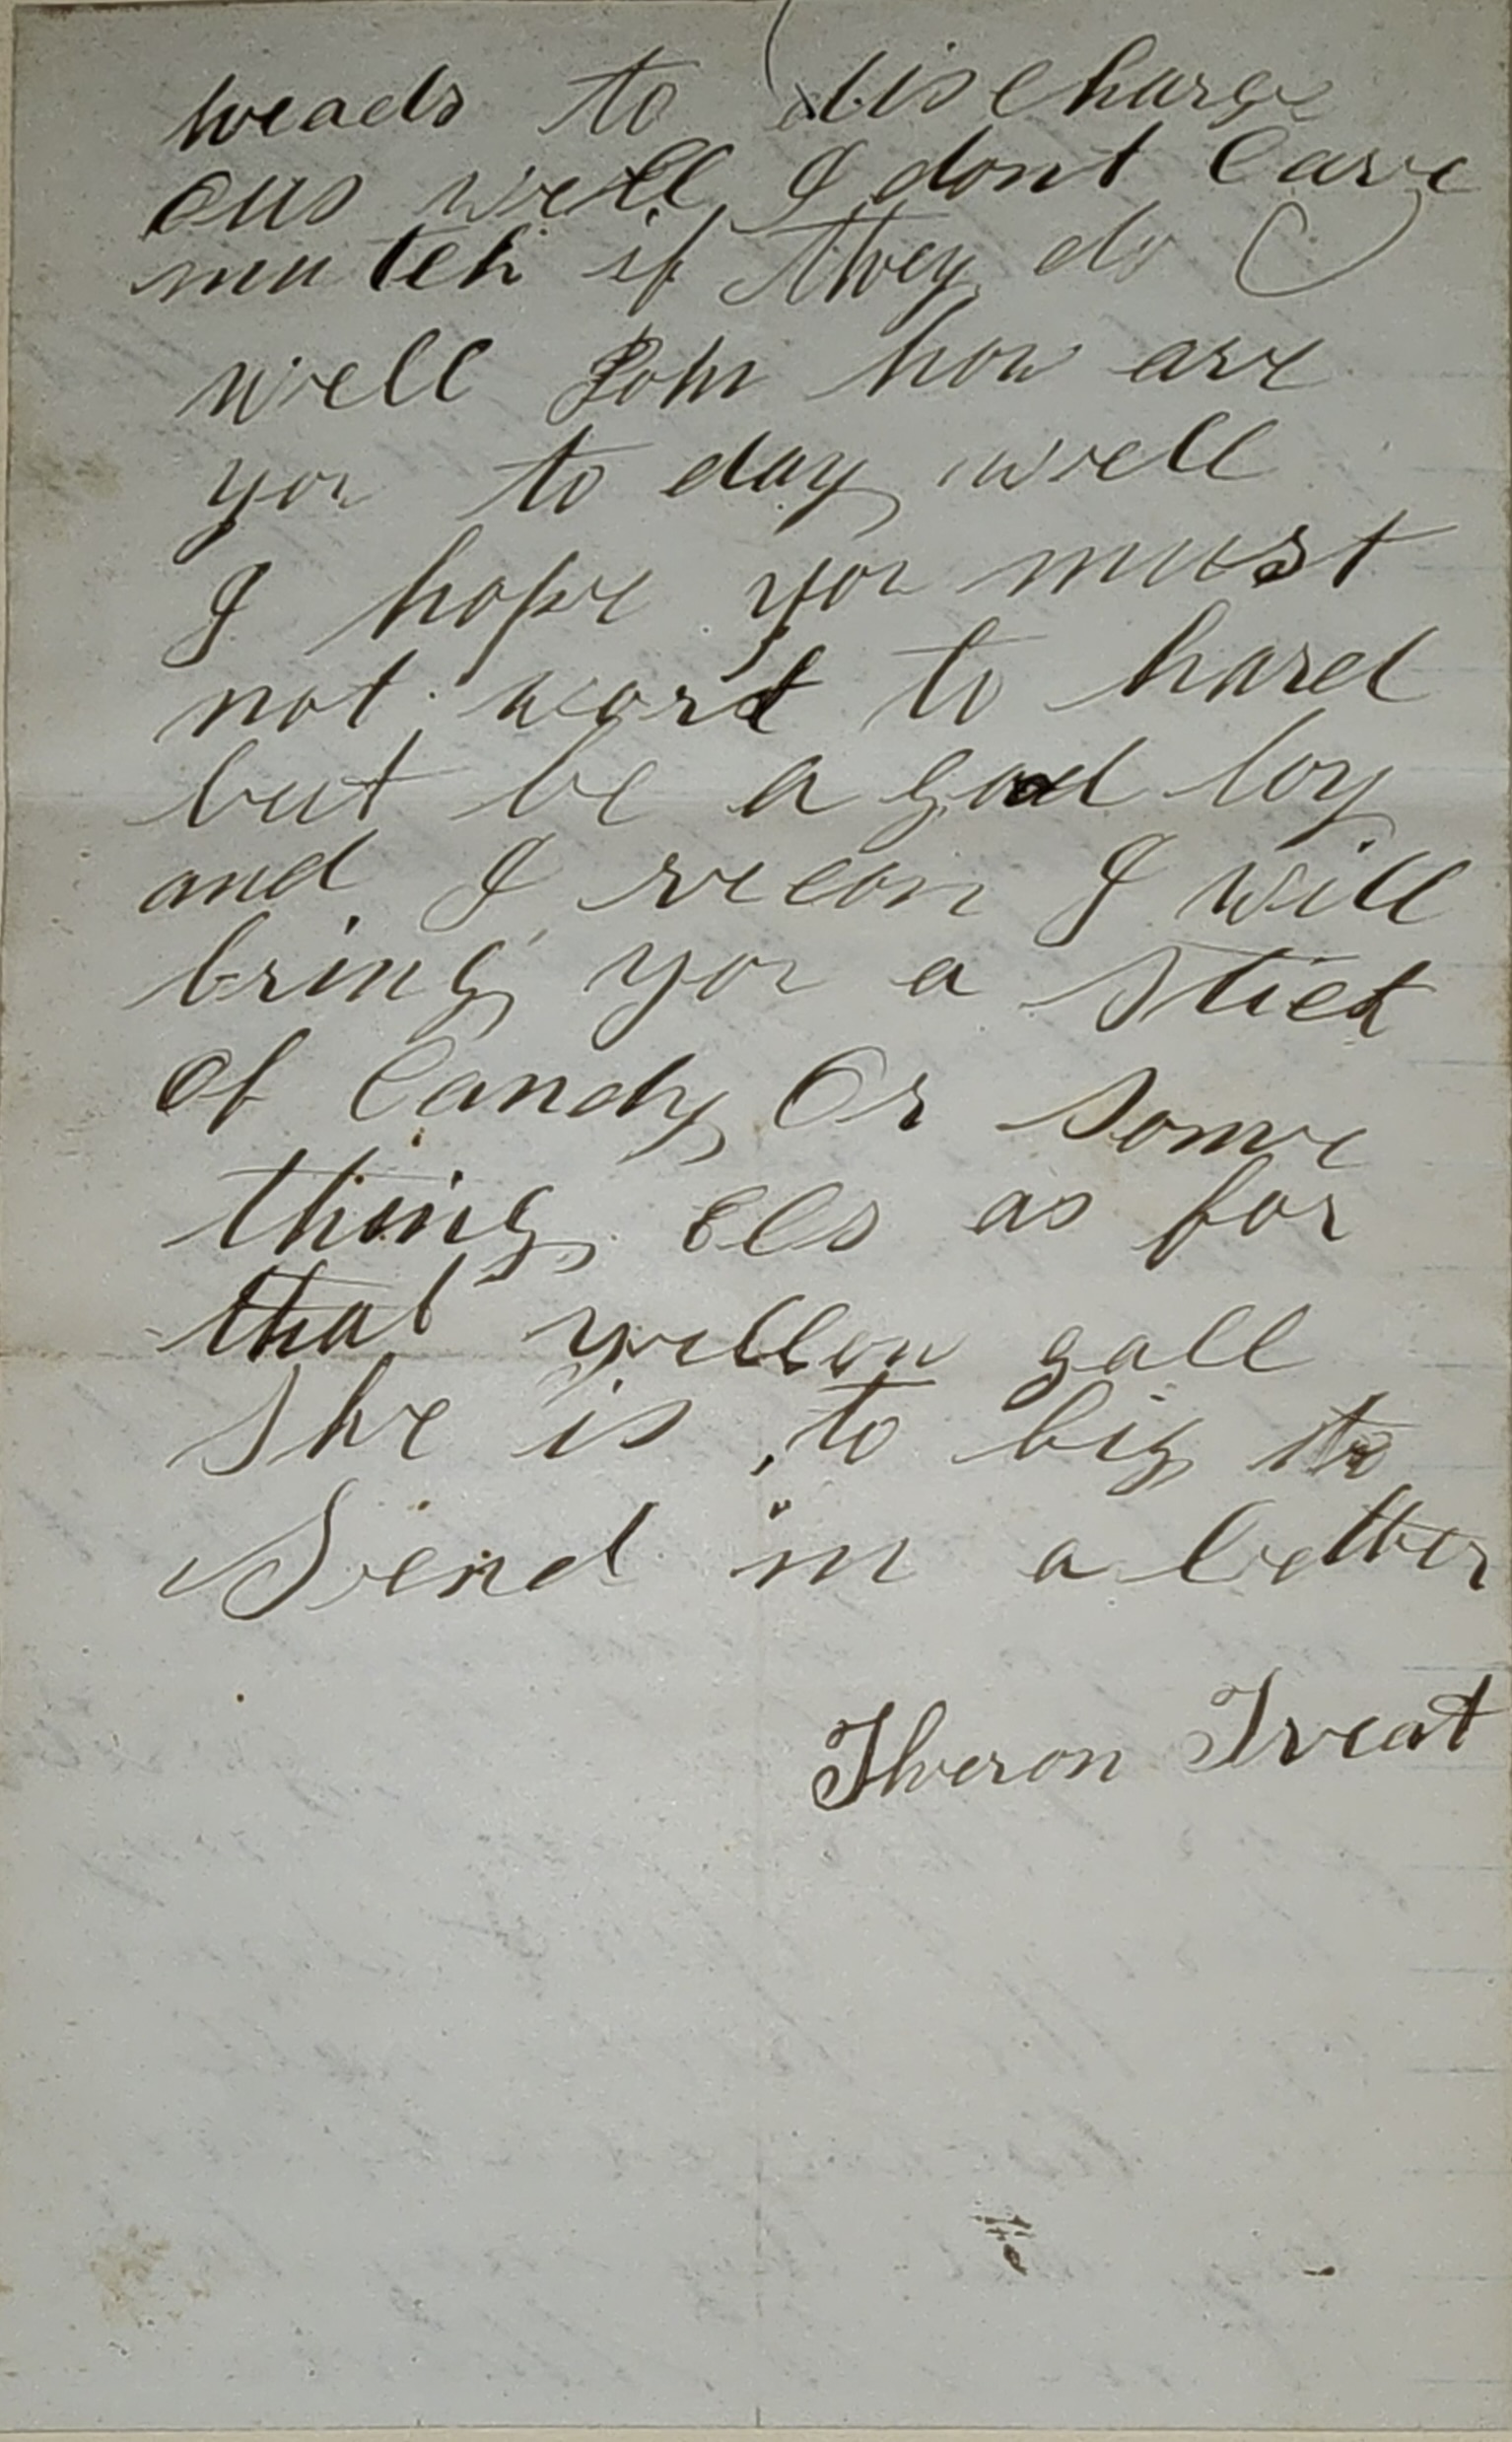 heads to discharge
ous well I dont Care
mutch if they do
well John how are
you to day well
I hope you must
not work to hard
but be a good boy
and I recon I will
bring you a stick
of Candy Or some
thing els as for
that yellow gall
she is to big to
Send in a letter
Theron Treat